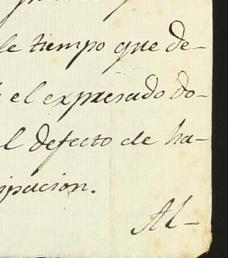 le tiempo que de-
el expresado do-
l defecto de ha-
ipacion.
Al-